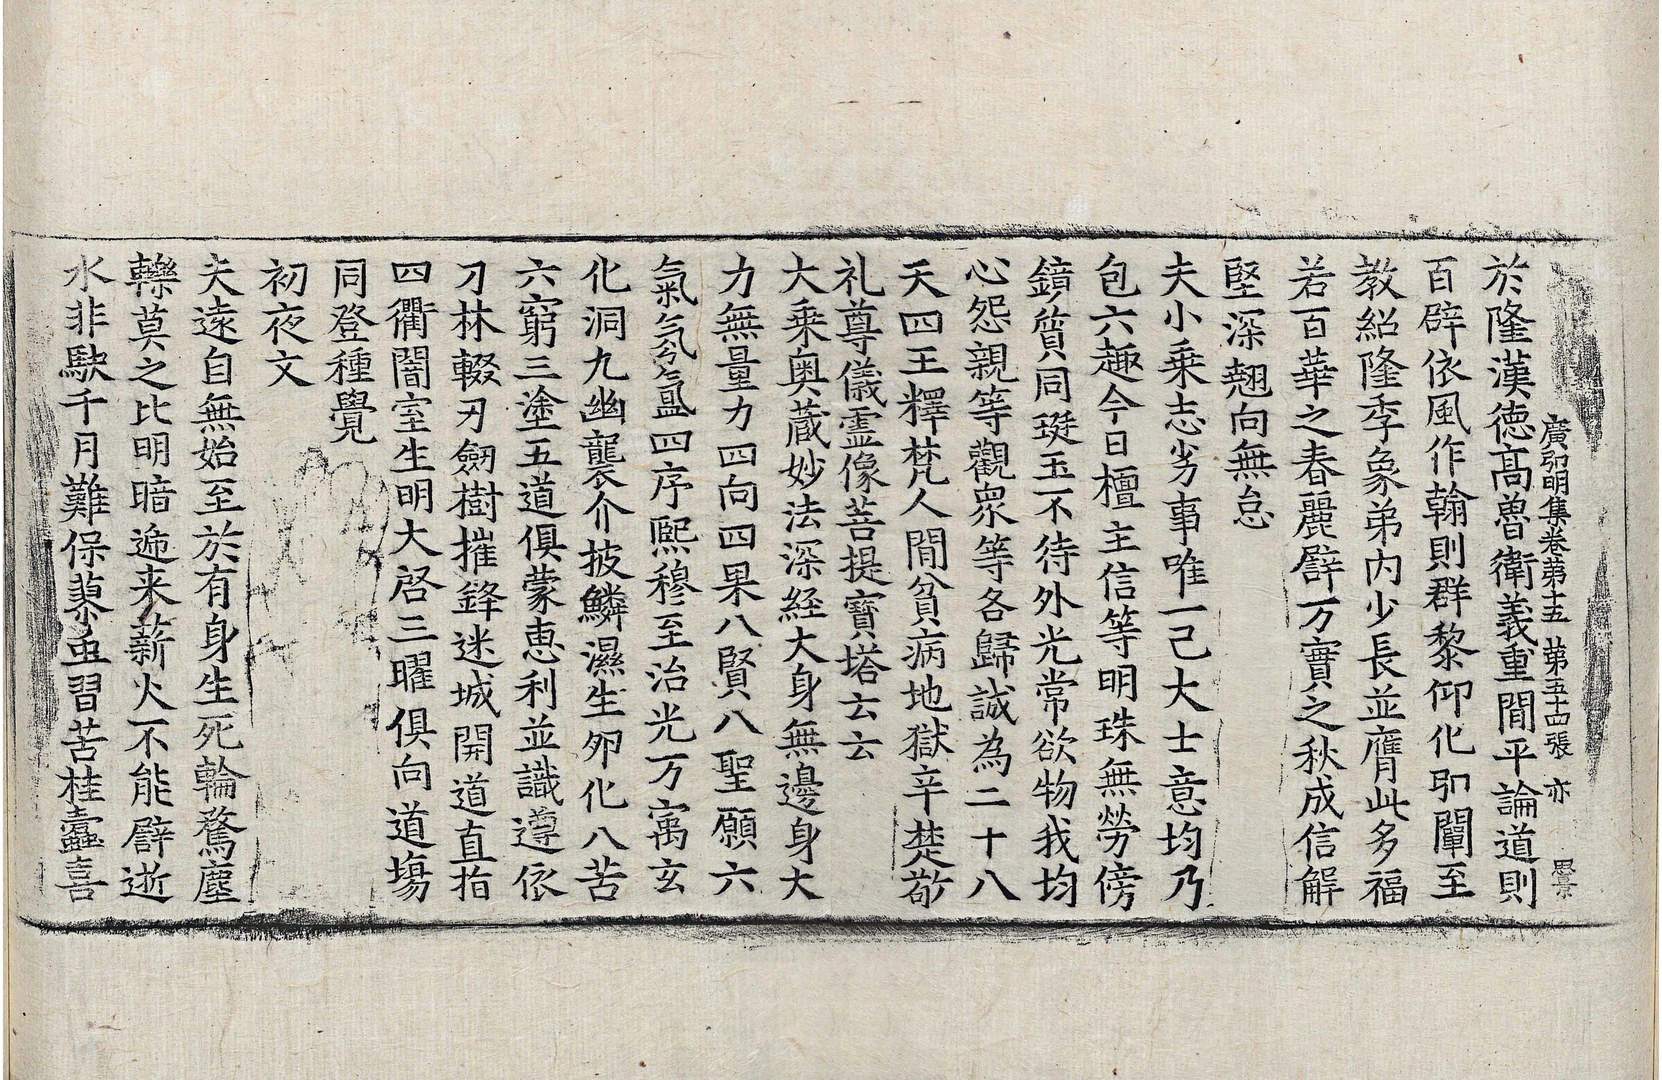 廣弘明集卷第十五 第五十四張 亦
於隆漢德高魯衛義重間平論道則
百辟依風作翰則群黎仰化卽闡至
教紹隆季象弟內少長並膺此多福
若百華之春麗譬万寶之秋成信解
堅深翹向無怠
夫小乘志劣事唯一己大士意均乃
包六趣今日檀主信等明珠無勞傍
鏡質同珽玉不待外光常欲物我均
心怨親等觀衆等各歸誠為二十八
天四王釋梵人間貧病地獄辛楚敬
礼尊儀霊像菩提寶塔云云
大乘奥蔵妙法深経大身無邊身大
力無量力四向四果八賢八聖願六
氣氛氳四序熙穆至治光万寓玄
化洞九幽襲介披鱗濕生夘化八苦
六窮三塗五道俱蒙恵利並識遵依
刀林輟刃劔樹摧鋒迷城開道直指
四衢闇室生明大启三曜俱向道場
同登種覺
初夜文
夫遠自無始至於有身生死輪騖塵
轢莫之比明暗遞来薪火不能譬逝
水非駛千月難保蓼虫習苦桂蠹喜